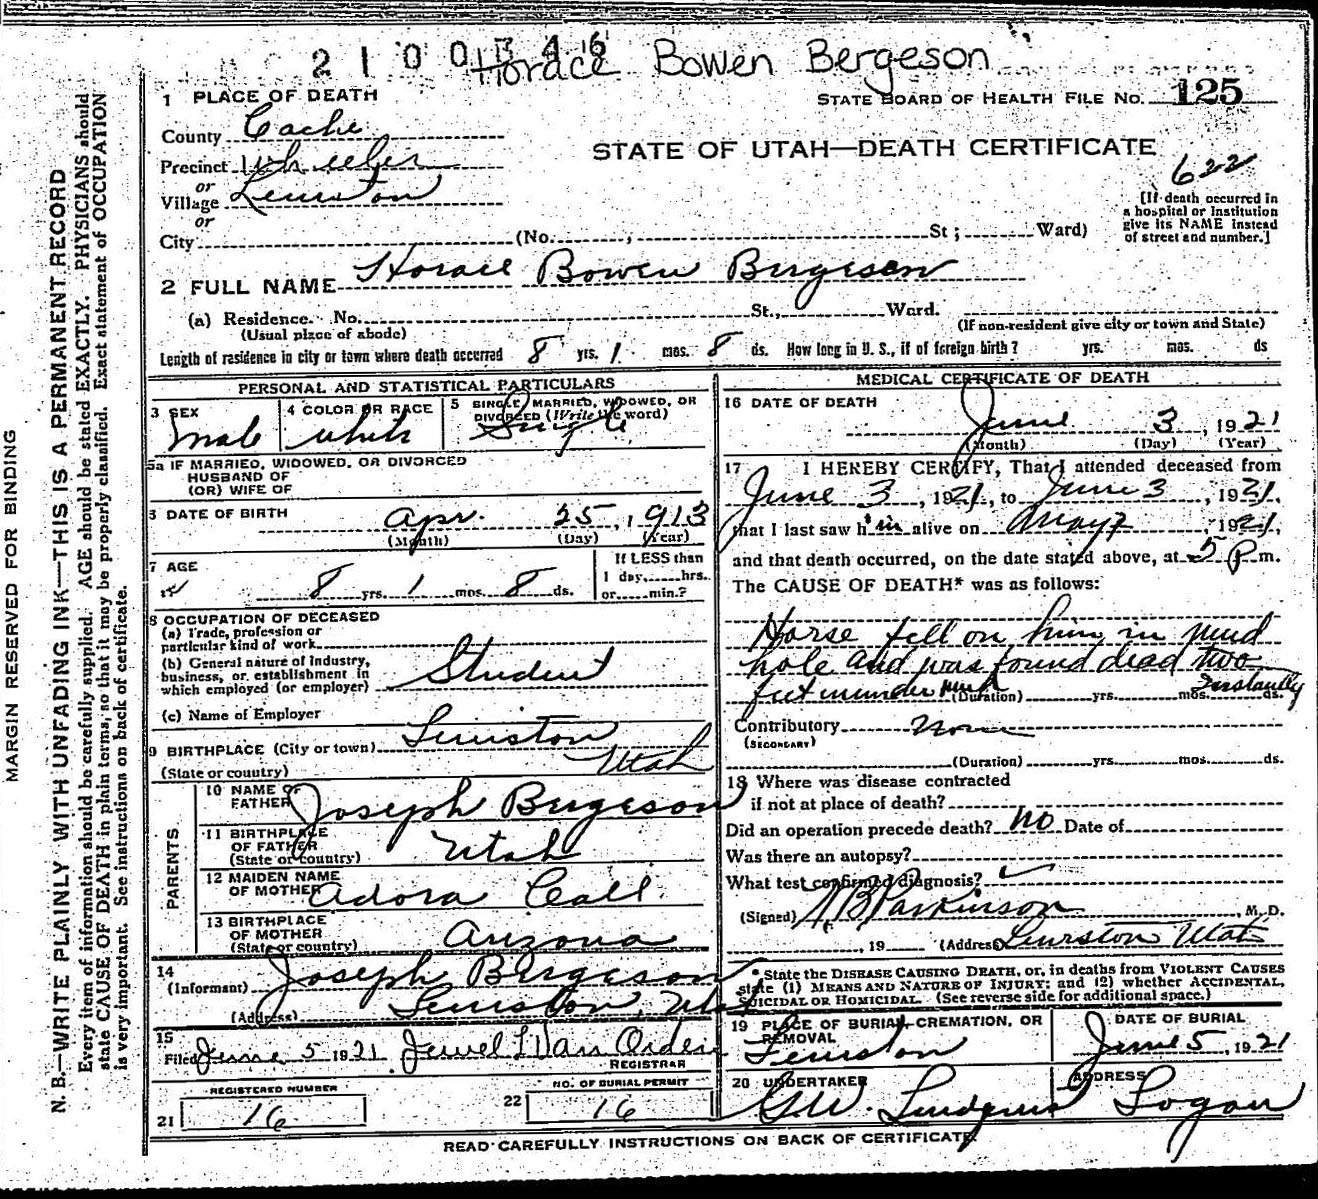 2 1 0 0 3 4 6
Horace Bowen Bergeson
STATE BOARD OF HEALTH FILE NO. 125
1 PLACE OF DEATH
County Cache
STATE OF UTAH—DEATH CERTIFICATE
Precinct Wheeler
622
or
Village Lewiston
or
[If death occurred in
a hospital or Institution
give its NAME instead
of street and number.]
City (No. , St ; Ward)
2 FULL NAME Horace Bowen Bergeson
(a) Residence. No. St., Ward.
(Usual place of abode) (If non-resident give city or town and State)
Length of residence in city or town where death occurred 8 yrs. 1 mos. 8 ds. How long in U. S., if of foreign birth? yrs. mos. ds
PERSONAL AND STATISTICAL PARTICULARS
3 SEX Male
4 COLOR OR RACE White
5 SINGLE, MARRIED, WIDOWED, OR
DIVORCED (Write the word)
Single
5a IF MARRIED, WIDOWED, OR DIVORCED
HUSBAND OF
(OR) WIFE OF
6 DATE OF BIRTH Apr. 25, 1913
(Month) (Day) (Year)
7 AGE
8 yrs. 1 mos. 8 ds.
If LESS than
1 day, hrs.
or min.?
8 OCCUPATION OF DECEASED
(a) Trade, profession or
particular kind of work
(b) General nature of Industry,
business, or establishment in
which employed (or employer) Student
(c) Name of Employer
9 BIRTHPLACE (City or town) Lewiston
(State or country) Utah
PARENTS
10 NAME OF
FATHER Joseph Bergeson
11 BIRTHPLACE
OF FATHER
(State or country) Utah
12 MAIDEN NAME
OF MOTHER Adora Call
13 BIRTHPLACE
OF MOTHER
(State or country) Arizona
14
(Informant) Joseph Bergeson
(Address) Lewiston, Utah
15
Filed June 5 1921 Jewel L Van Orden
REGISTRAR
REGISTERED NUMBER
21 16
NO. OF BURIAL PERMIT
22 16
MEDICAL CERTIFICATE OF DEATH
16 DATE OF DEATH
June 3, 1921
(Month) (Day) (Year)
17 I HEREBY CERTIFY, That I attended deceased from
June 3, 1921, to June 3, 1921,
that I last saw him alive on May 7, 1921,
and that death occurred, on the date stated above, at 5 P m.
The CAUSE OF DEATH* was as follows:
Horse fell on him in mud
hole and was found dead two
feet in under mud (Duration) yrs. mos. ds. Instantly
Contributory None
(SECONDARY)
(Duration) yrs. mos. ds.
18 Where was disease contracted
if not at place of death?
Did an operation precede death? No Date of
Was there an autopsy?
What test confirmed diagnosis?
(Signed) Parkinson, M. D.
, 19 (Address) Lewiston Utah
*State the DISEASE CAUSING DEATH, or, in deaths from VIOLENT CAUSES
state (1) MEANS AND NATURE OF INJURY; and (2) whether ACCIDENTAL,
SUICIDAL OR HOMICIDAL. (See reverse side for additional space.)
19 PLACE OF BURIAL, CREMATION, OR
REMOVAL
Lewiston
DATE OF BURIAL
June 5, 1921
20 UNDERTAKER
G.W. Lindquist
ADDRESS
Logan
READ CAREFULLY INSTRUCTIONS ON BACK OF CERTIFICATE.
MARGIN RESERVED FOR BINDING
N. B.—WRITE PLAINLY WITH UNFADING INK—THIS IS A PERMANENT RECORD
Every item of information should be carefully supplied. AGE should be stated EXACTLY. PHYSICIANS should
state CAUSE OF DEATH in plain terms, so that it may be properly classified. Exact statement of OCCUPATION
is very important. See instructions on back of certificate.